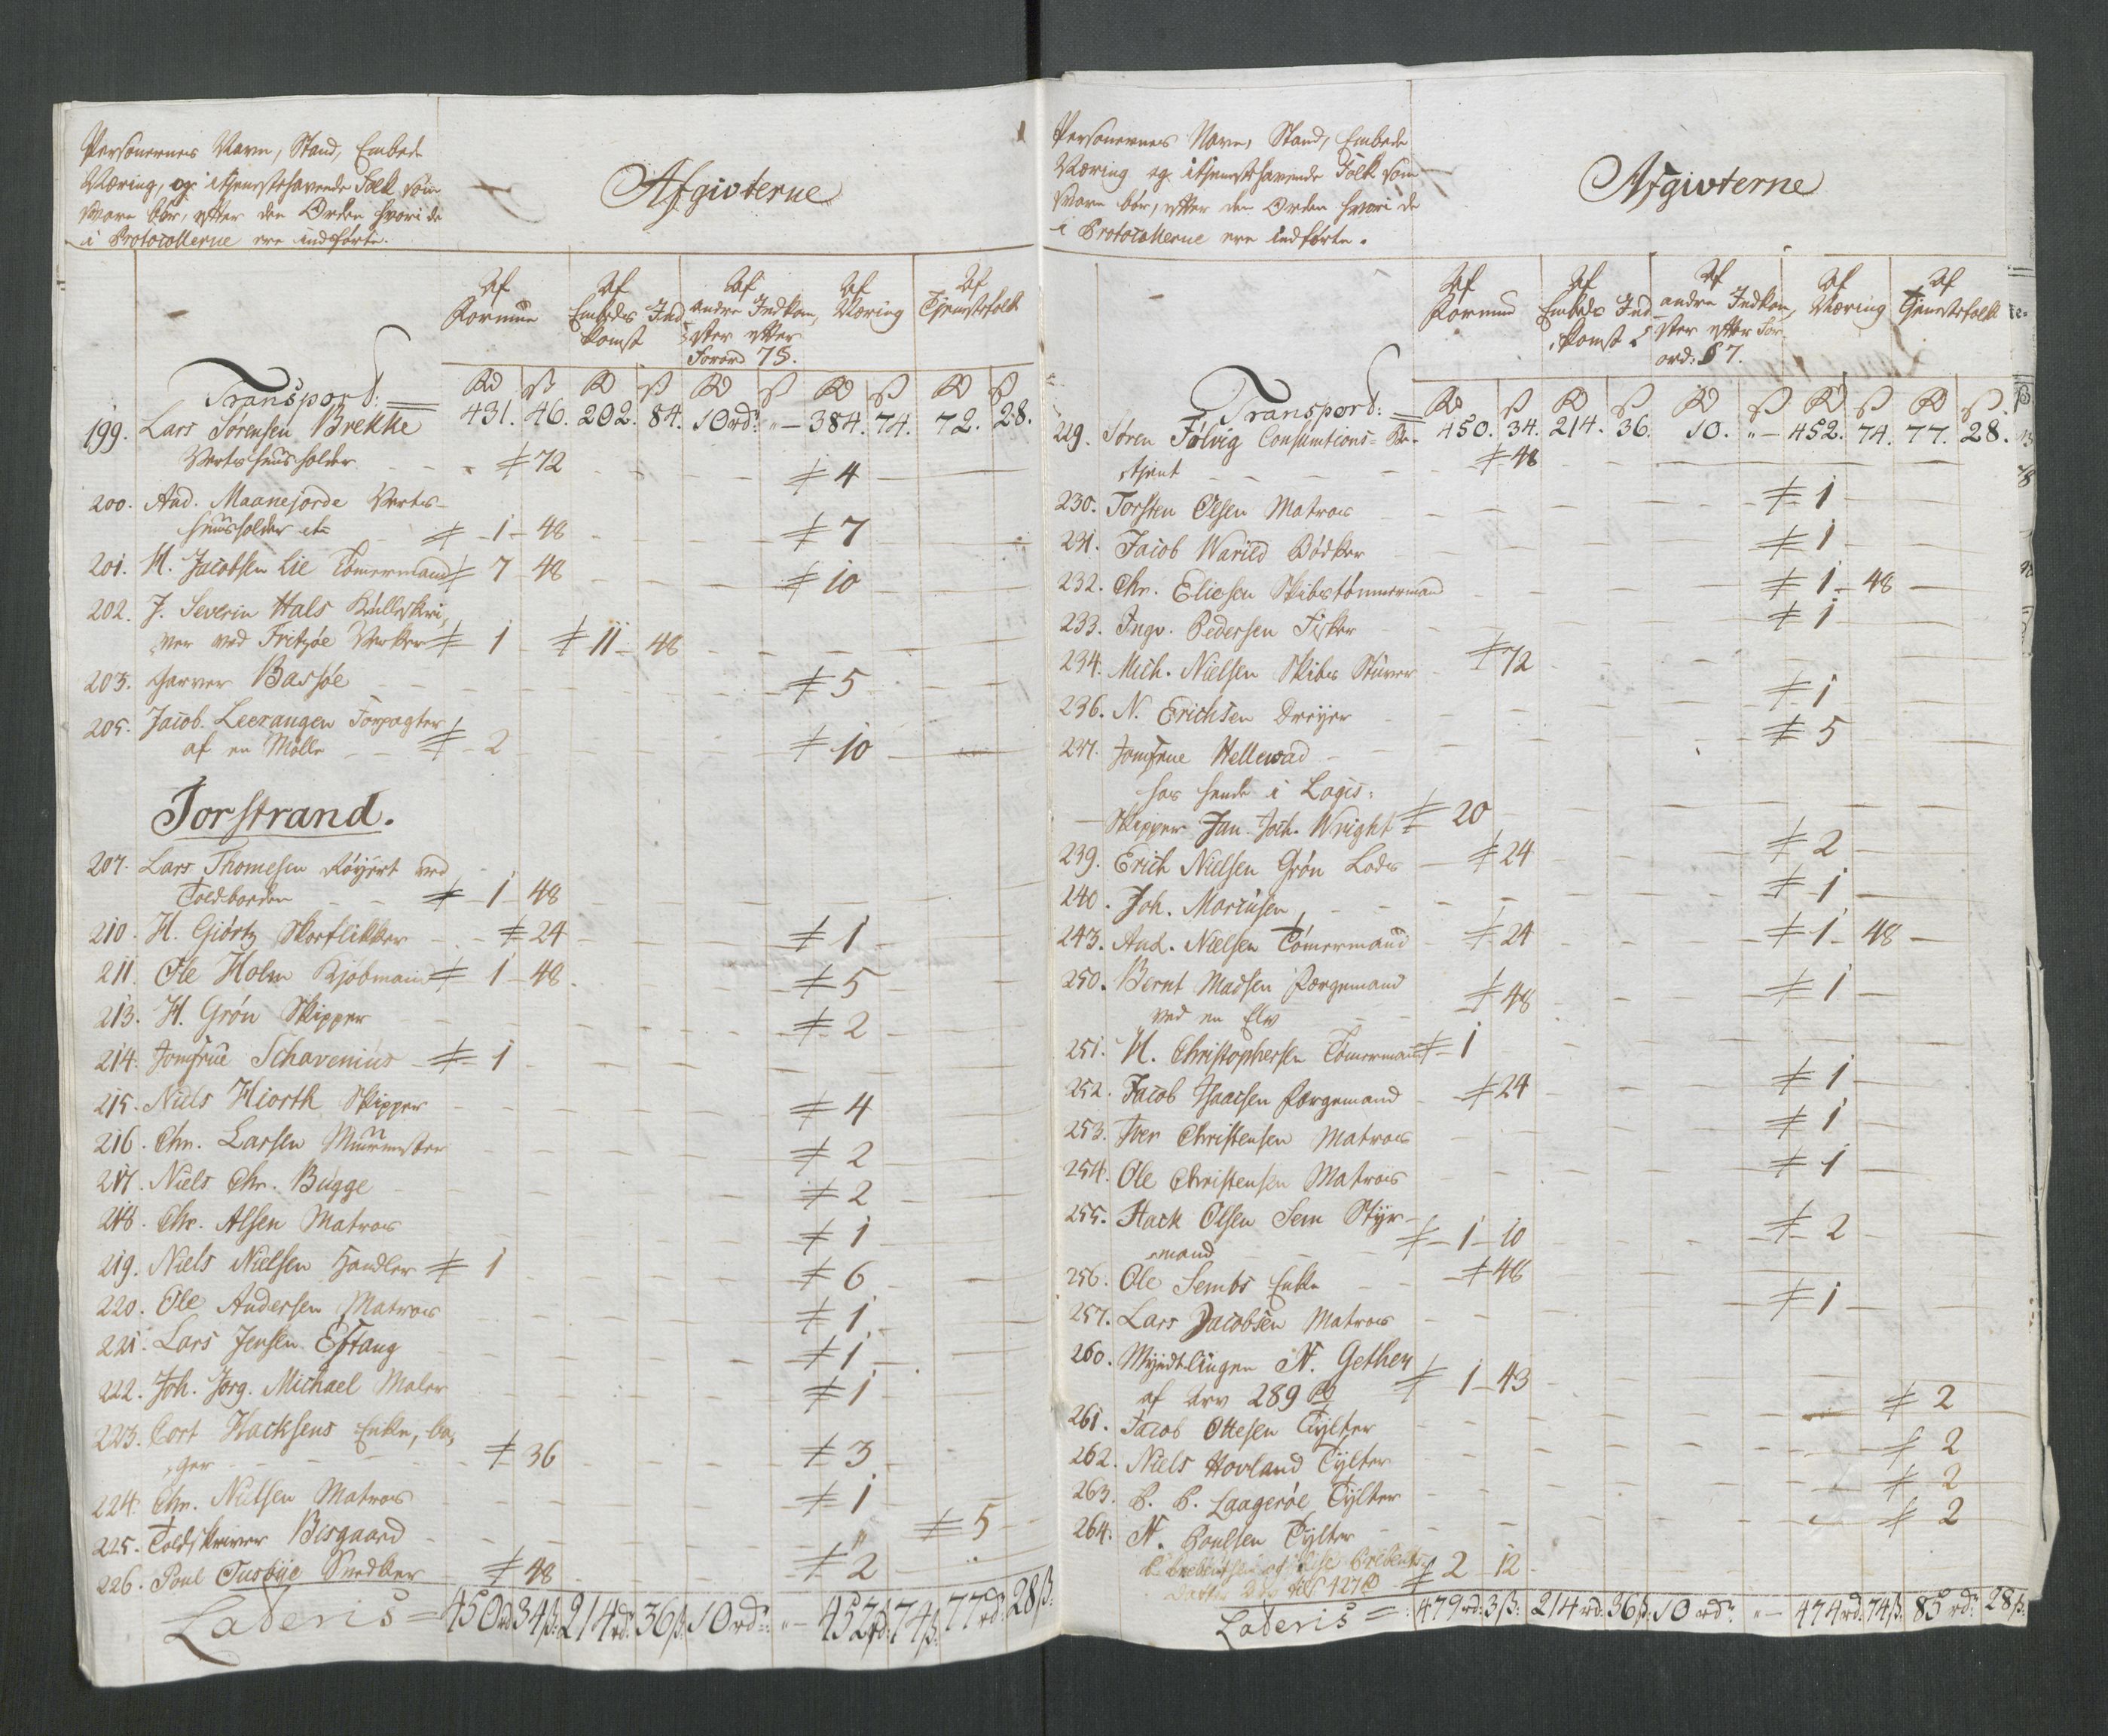 Personernes Navn, Stand, Embede
Næring, og itjenestehavende Folk som
svare bør, efter den Orden hvori de
i Protocollerne ere indførte.
Afgivterne
Af Formue
Af Embeds Indkomst
Af andre Indkomster efter Forord 7 S.
Af Næring
Af Tjenestefolk
Rd ß Rd ß Rd ß Rd ß Rd ß
Transport: 431. 46. 202. 84. 10 rdr „ — 384. 74. 72. 28.
199. Lars Sørensen Brekke
Vertshuusholder ≠ 72 ≠ 4
200. And. Maanejorde Verts-
huusholder etc ≠ 1 - 48 ≠ 7
201. H. Jacobsen Lie Tømermand ≠ 7 - 48 ≠ 10
202. J. Severin Hals Kullskri,
,ver ved Fritzøe Verker ≠ 1 ≠ 11 - 48
203. Garver Bassøe ≠ 5
205. Jacob Leerangen Forpagter
af en Mølle ≠ 2 ≠ 10
Torstrand.
207. Lars Thomesen Røyert ved
Toldboden ≠ 1 - 48
210. H. Giørtz Skoeflikker ≠ 24 ≠ 1
211. Ole Holm Kjøbmand ≠ 1 - 48 ≠ 5
213. H. Grøn Skipper ≠ 2
214. Jomfrue Schavenius ≠ 1
215. Niels Hiorth Skipper ≠ 4
216. Chr. Larsen Muurmester ≠ 2
217. Niels Chr. Bugge ≠ 2
218. Chr. Alsen Matros ≠ 1
219. Niels Nielsen Handler ≠ 1 ≠ 6
220. Ole Andersen Matros ≠ 1
221. Lars Jensen Estang ≠ 1
222. Joh. Jørg. Michael Maler ≠ 1
223. Cort Hacksens Enke, ba,
,ger ≠ 36 ≠ 3
224. Chr. Nielsen Matros ≠ 1
225. Toldskriver Bisgaard „ ≠ 5
226. Poul Tusbye Snedker ≠ 48 ≠ 2
Lateris = 450 rd 34 ß. 214 rd. 36 ß. 10 rdr „ — 452 rd. 74 ß. 77 rd. 28 ß.
Personernes Navn, Stand, Embede
Næring og itjenestehavende Folk som
svare bør, efter den Orden hvori de
i Protocollerne ere indførte.
Afgivterne
Af Formue
Af Embeds Indkomst
Af andre Indkomster efter Forord: § 7.
Af Næring
Af Tjenestefolk
Rd ß Rd ß Rd ß Rd ß Rd ß
Transport: 450. 34. 214. 36. 10. „ — 452. 74. 77. 28.
229. Søren Følvig Consumtions- Be-
,tjent ≠ 48
230. Torsten Olsen Matros ≠ 1
231. Jacob Warild Bødker ≠ 1
232. Chr. Eliesen Skibstømmermand ≠ 1 - 48
233. Ingv. Pedersen Fisker ≠ 1
234. Mich. Nielsen Skibs Stuver ≠ 72
236. N. Erichsen Dreyer ≠ 1
237. Jomfrue Hellewad ≠ 5
hos hende i Logis:
Skipper Jan. Joch. Wright ≠ 20
239. Erich Nielsen Grøn Lods ≠ 24 ≠ 2
240. Joh. Mariusen ≠ 1
243. And. Nielsen Tømermand ≠ 24 ≠ 1 - 48
250. Bernt Madsen Færgemand
ved en Elv ≠ 48 ≠ 1
251. H. Christophersen Tømermand ≠ 1
252. Jacob Isaacsen Færgemand ≠ 24 ≠ 1
253. Iver Christensen Matros ≠ 1
254. Ole Christensen Matros ≠ 1
255. Hack Olsen Sem Styr-
mand ≠ 1 - 10 ≠ 2
256. Ole Sembs Enke ≠ 48
257. Lars Jacobsen Matros ≠ 1
260. Myndtlingen N. Gether
af Arv 289 Rd ≠ 1 - 43
261. Jacob Ottesen Tylter ≠ 2
262. Niels Hovland Tylter ≠ 2
263. P. P. Laagerøe Tylter ≠ 2
264. N. Poulsen Tylter ≠ 2
427 Rd ≠ 2 - 12
Lateris = 479 rd: 3 ß: 214 rd. 36 ß. 10 rdr „ — 474 rd: 74 ß: 85 rdr 28 ß: